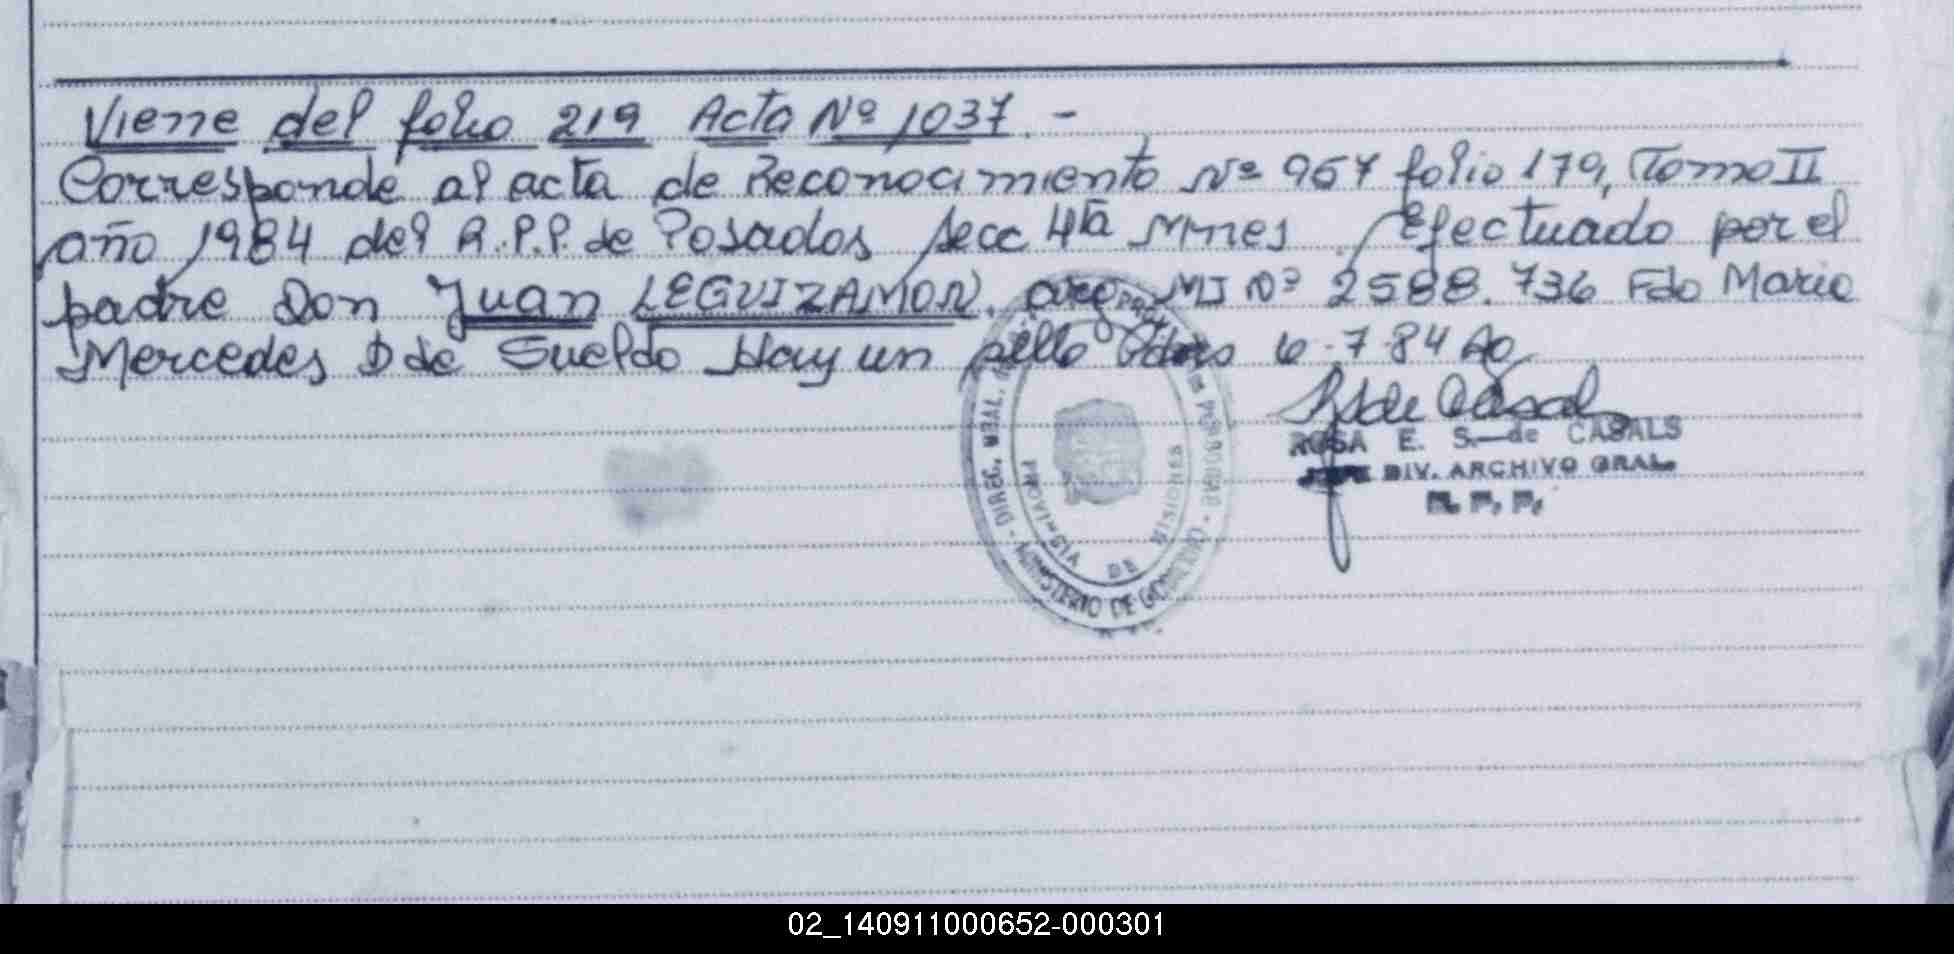 Viene del folio 219 Acta Nº 1037. -
Corresponde al acta de Reconocimiento Nº 967 folio 179, Tomo II
año 1984 del R.P.P. de Posadas Secc 4ta Mnes. Efectuado por el
padre Don Juan LEGUIZAMON. arg. MI Nº 2588.736 Fdo Maria
Mercedes D de Sueldo Hay un sello Pdas 6-7-84
ROSA E. S. de CASALS
JEFE DIV. ARCHIVO GRAL.
R. P. P.
PROVINCIA DE MISIONES
MINISTERIO DE GOBIERNO
02_140911000652-000301